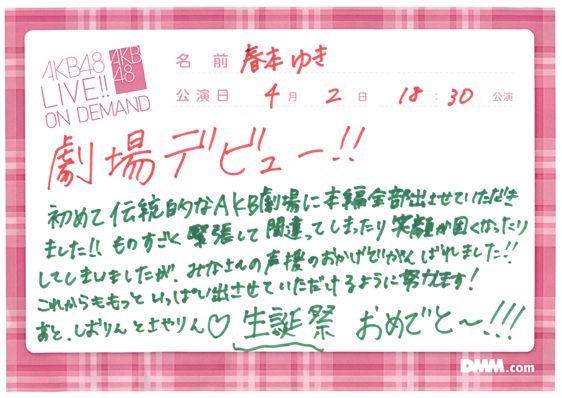 AKB48
LIVE!!
ON DEMAND
AKB
48
名前 春本ゆき
公演日 4月2日 18:30 公演
劇場デビュー!!
初めて伝統的なAKB劇場に本編全部出させていただき
ました!! ものすごく緊張して間違ってしまったり笑顔が固くなったり
してしまいましたが、みなさんの声援のおかげでがんばれました!!
これからももっといっぱい出させていただけるように努力ます!
あと、しおりんとさやりん♡生誕祭 おめでと〜!!!
DMM.com